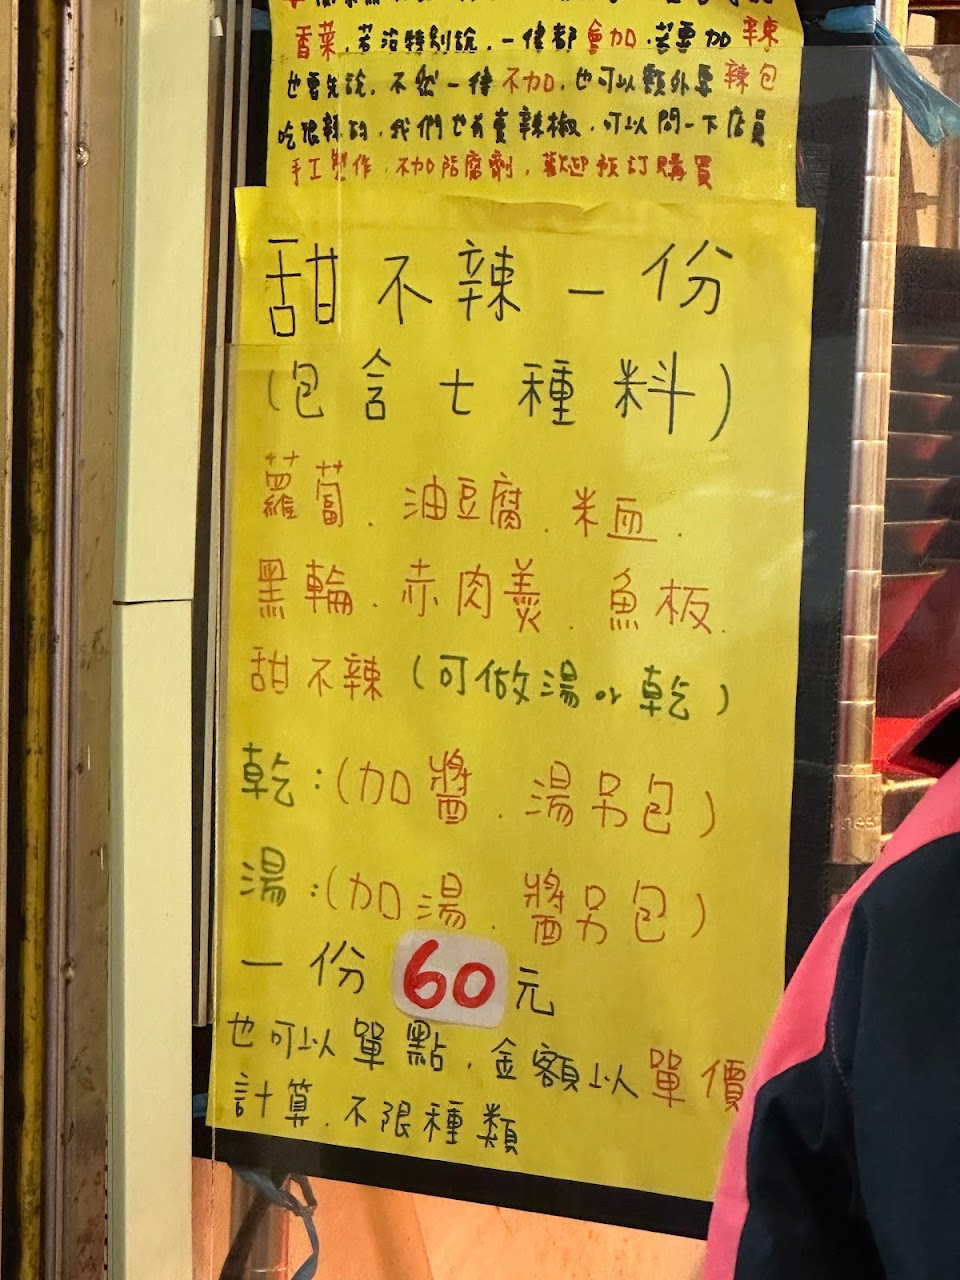 香菜，若沒特別說，一律都會加．若要加辣
也要先說，不然一律不加，也可以額外要辣包
吃很辣的，我們也有賣辣椒，可以問一下店員
手工製作，不加防腐劑，歡迎預訂購買
甜不辣一份
(包含七種料)
蘿蔔．油豆腐．米血．
黑輪．赤肉羹．魚板．
甜不辣(可做湯or乾)
乾：(加醬．湯另包)
湯：(加湯．醬另包)
一份60元
也可以單點，金額以單價
計算．不限種類